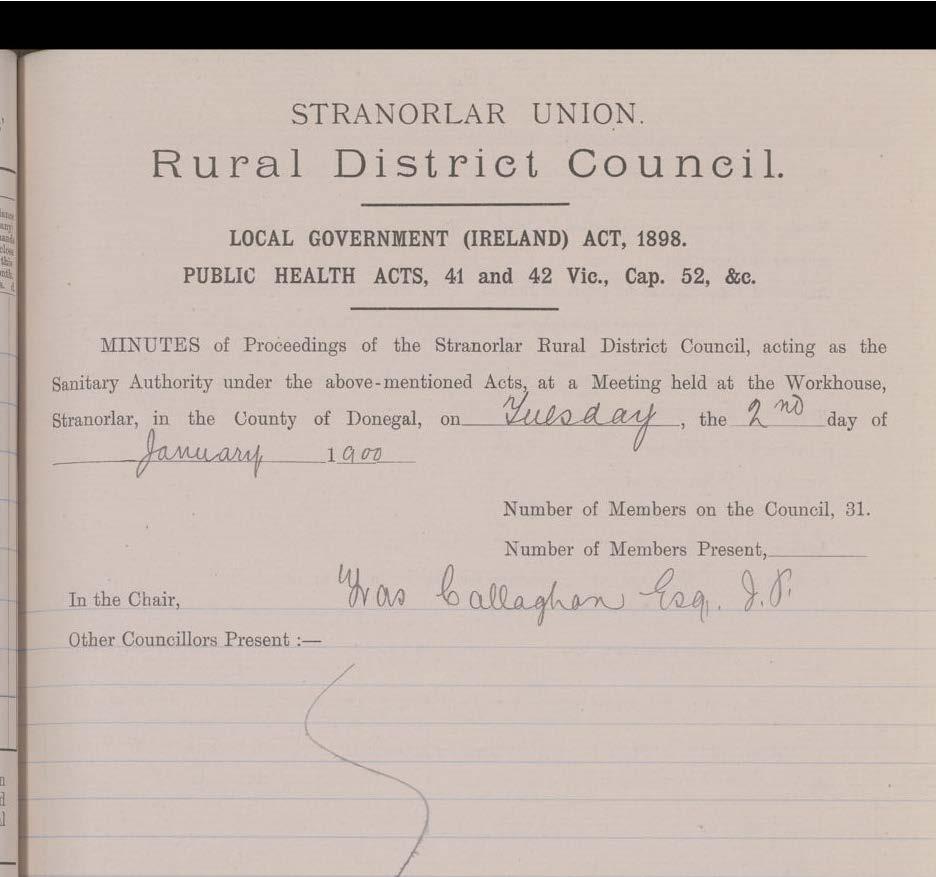 STRANORLAR UNION.
Rural District Council.
LOCAL GOVERNMENT (IRELAND) ACT, 1898.
PUBLIC HEALTH ACTS, 41 and 42 Vic., Cap. 52, &c.
MINUTES of Proceedings of the Stranorlar Rural District Council, acting as the
Sanitary Authority under the above-mentioned Acts, at a Meeting held at the Workhouse,
Stranorlar, in the County of Donegal, on Tuesday, the 2nd day of
January 1900
Number of Members on the Council, 31.
Number of Members Present,
In the Chair, Callaghan Esq. J.P.
Other Councillors Present :—